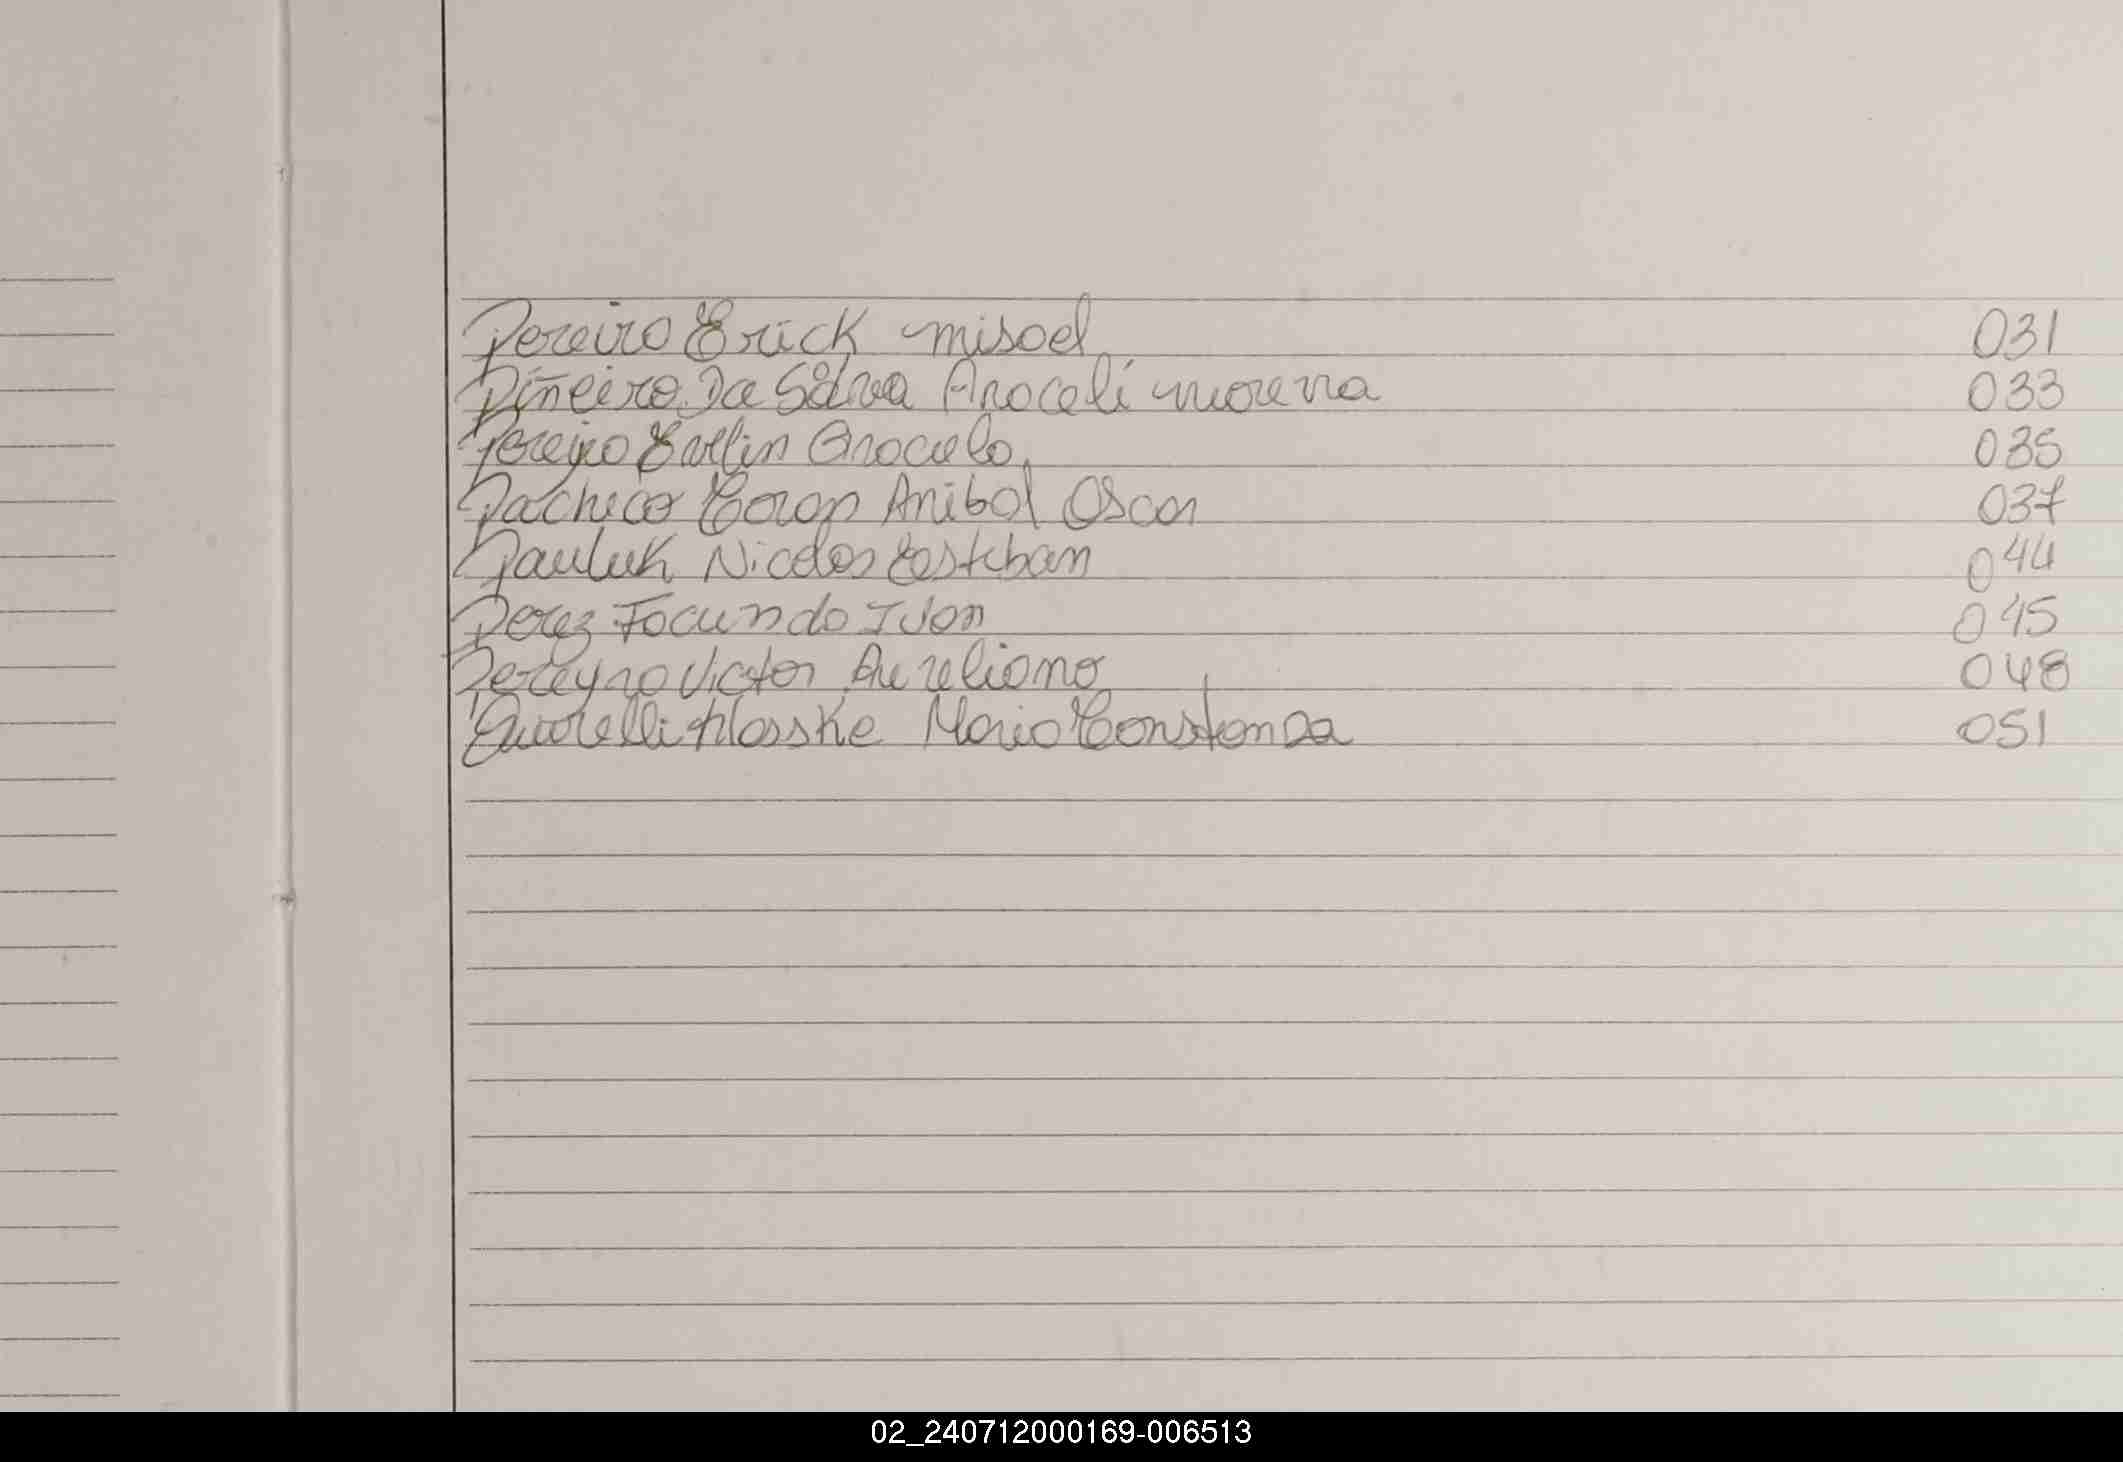 Pereira Erick misael 031
Piñeiro Da Silva Araceli morena 033
Pereyra Evelin Graciela 035
Pacheco Coron Anibal Oscar 037
Pauluk Nicolas Esteban 044
Perez Facundo Ivan 045
Pereyra Victor Aureliano 048
Klosske Maria Constanza 051
02_240712000169-006513